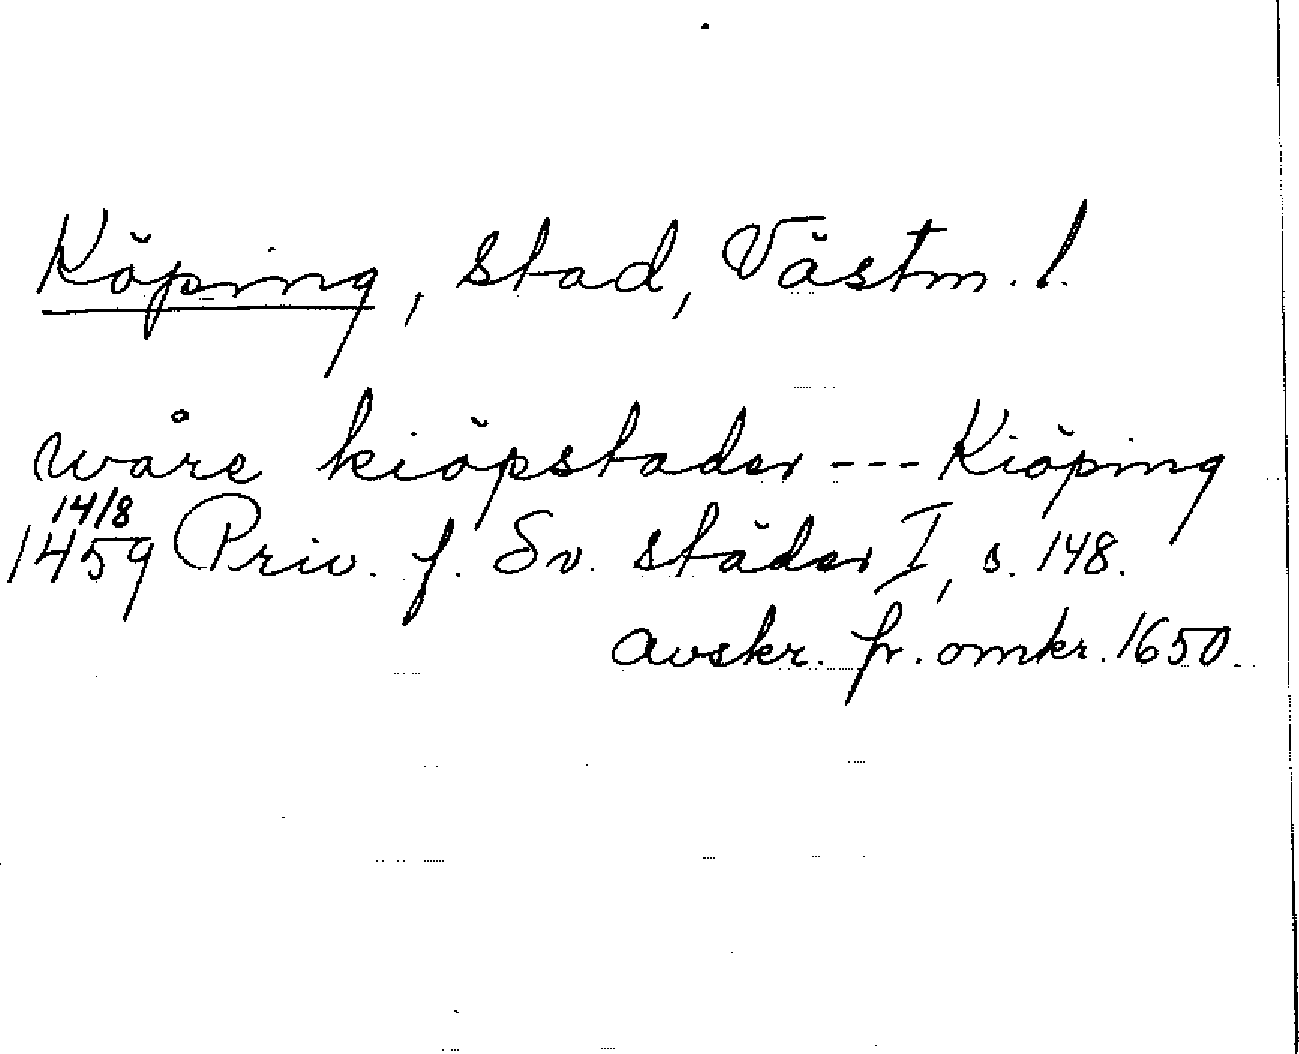 Köping, stad, Västm. l.
wåre kiöpstader --- Kiöping
14/8
1459 Priv. f. Sv. städer I, s. 148.
avskr. fr. omkr. 1650.